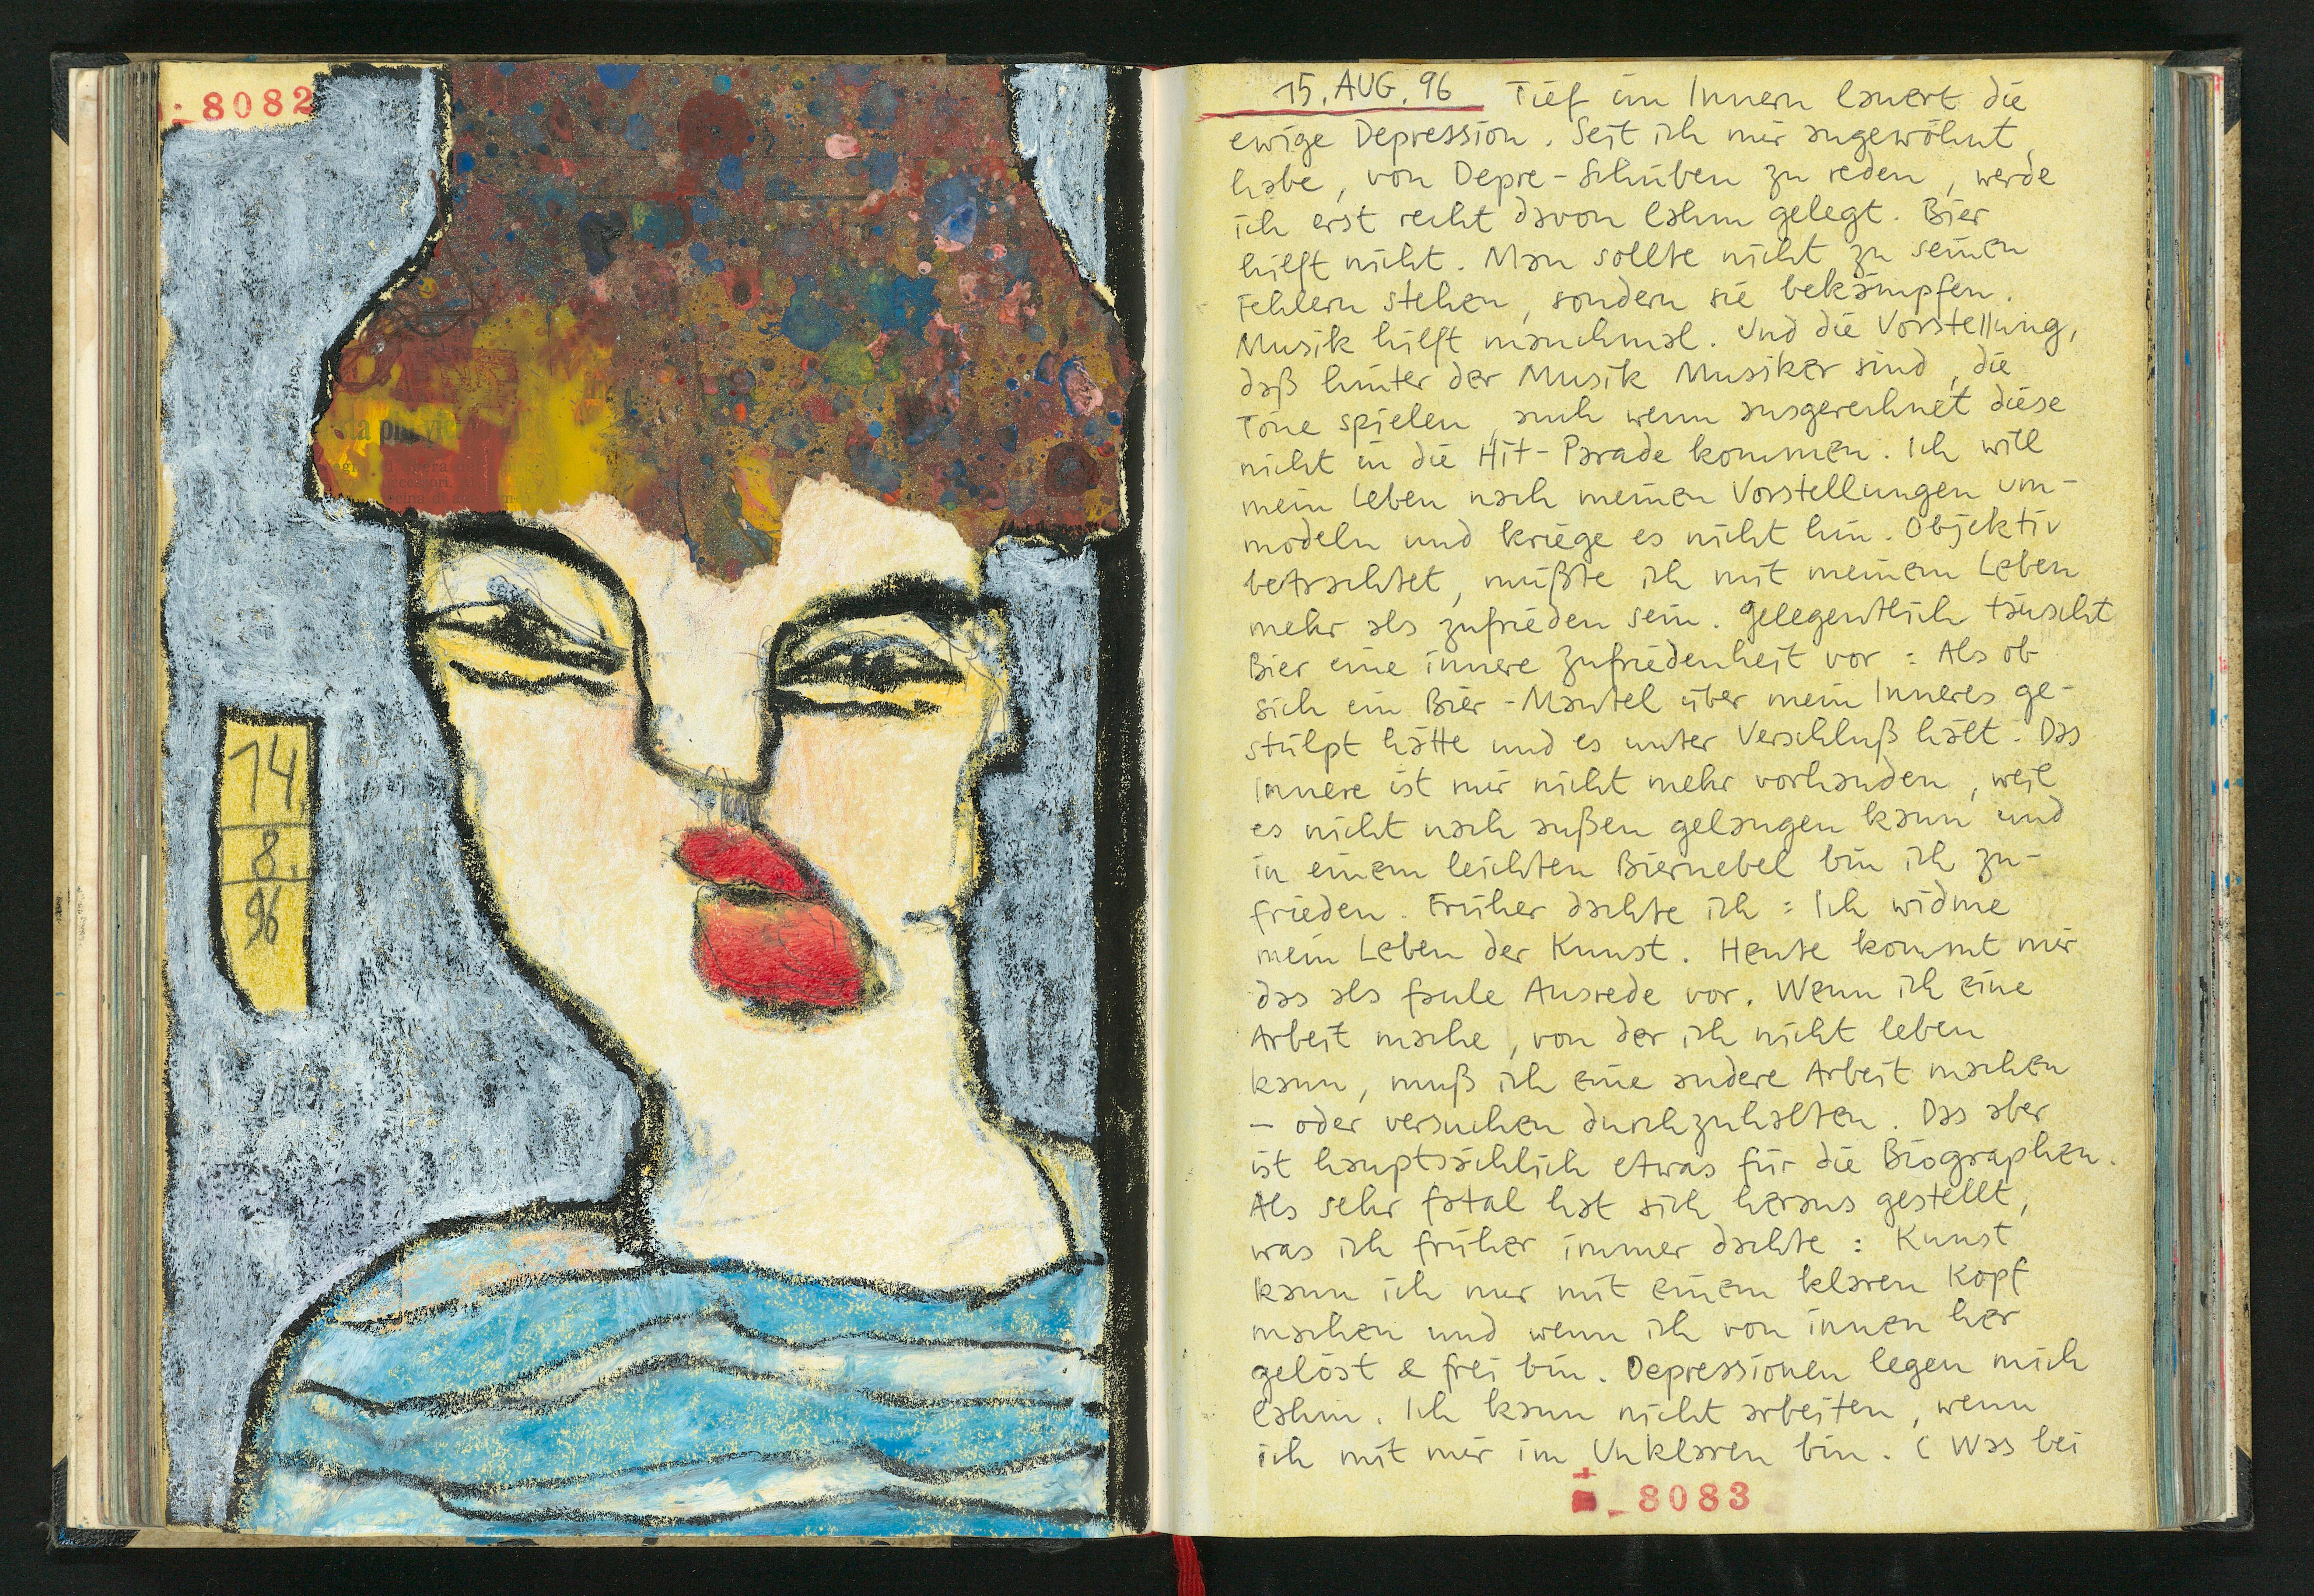 8082
ta più vic
opera del
ccessori.
cina di
14.
8.
96
15. AUG. 96 Tief im Innern lauert die
ewige Depression. Seit ich mir angewöhnt
habe, von Depre-Schüben zu reden, werde
ich erst recht davon lahm gelegt. Bier
hilft nicht. Man sollte nicht zu seinen
Fehlern stehen, sondern sie bekämpfen.
Musik hilft manchmal. Und die Vorstellung,
daß hinter der Musik Musiker sind, die
Töne spielen, auch wenn ausgerechnet diese
nicht in die Hit-Parade kommen. Ich will
mein Leben nach meinen Vorstellungen um-
modeln und kriege es nicht hin. Objektiv
betrachtet, müßte ich mit meinem Leben
mehr als zufrieden sein. Gelegentlich täuscht
Bier eine innere Zufriedenheit vor: Als ob
sich ein Bier-Mantel über mein Inneres ge-
stülpt hätte und es unter Verschluß hält. Das
Innere ist mir nicht mehr vorhanden, weil
es nicht nach außen gelangen kann und
in einem leichten Biernebel bin ich zu-
frieden. Früher dachte ich: Ich widme
mein Leben der Kunst. Heute kommt mir
das als faule Ausrede vor. Wenn ich eine
Arbeit mache, von der ich nicht leben
kann, muß ich eine andere Arbeit machen
– oder versuchen durchzuhalten. Das aber
ist hauptsächlich etwas für die Biographen.
Als sehr fatal hat sich heraus gestellt,
was ich früher immer dachte: Kunst
kann ich nur mit einem klaren Kopf
machen und wenn ich von innen her
gelöst & frei bin. Depressionen legen mich
lahm. Ich kann nicht arbeiten, wenn
ich mit mir im Unklaren bin. (Was bei
8083